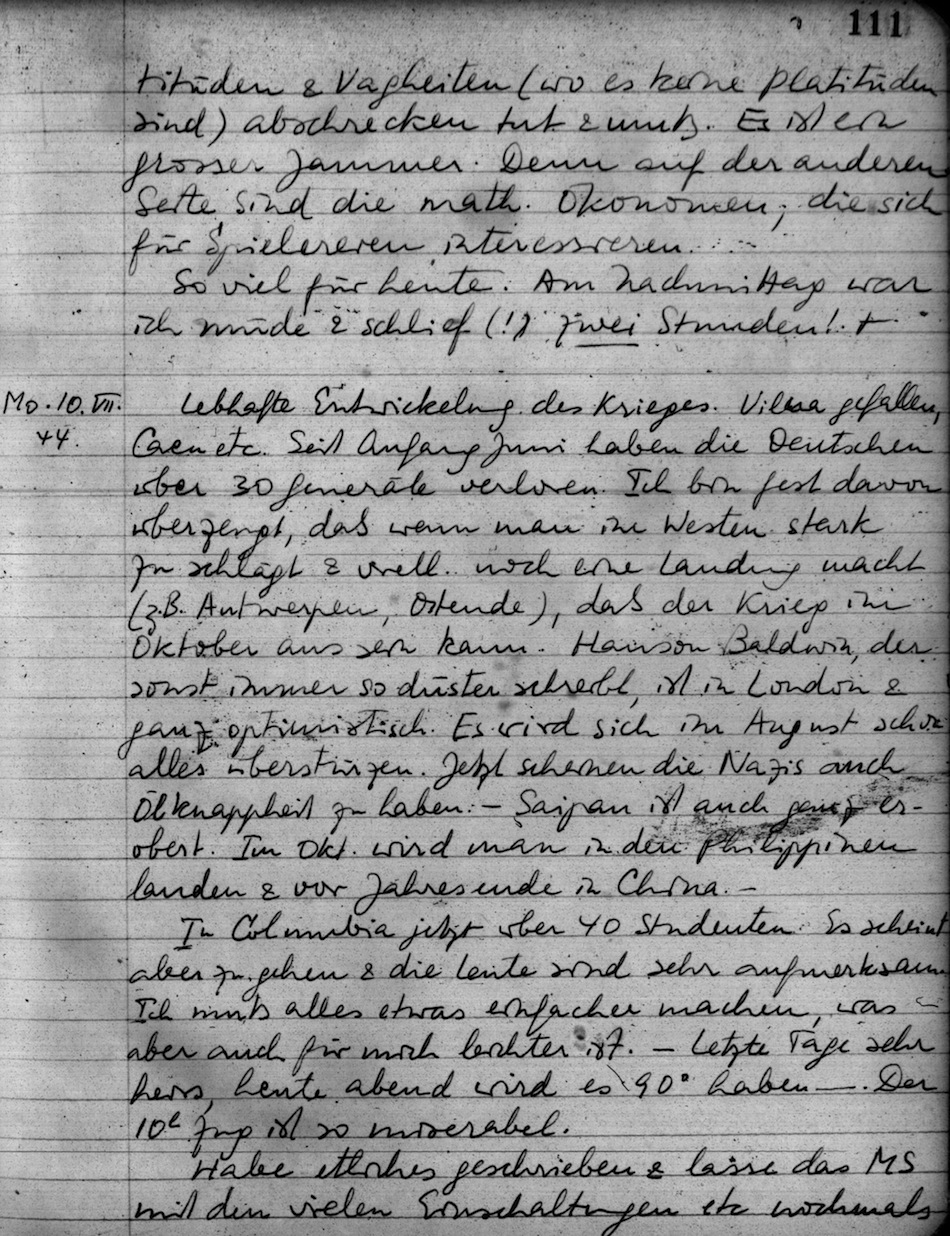 111
tituden & Vagheiten (wo es keine Platituden
sind) abschrecken tut & muß. Es ist ein
grosser Jammer. Denn auf der anderen
Seite sind die math. Ökonomen, die sich
für Spielereien interessieren.
So viel für heute. Am Nachmittag war
ich müde & schlief (!) zwei Stunden! +
Mo. 10. VII.
44.
Lebhafte Entwickelung des Krieges. Vilna gefallen,
Caen etc. Seit Anfang Juni haben die Deutschen
über 30 Generäle verloren. Ich bin fest davon
überzeugt, daß wenn man im Westen stark
zu schlägt & viell. noch eine Landung macht
(z.B. Antwerpen, Ostende), daß der Krieg im
Oktober aus sein kann. Hanson Baldwin, der
sonst immer so düster schreibt, ist in London &
ganz optimistisch. Es wird sich im August schon
alles überstürzen. Jetzt scheinen die Nazis auch
Ölknappheit zu haben. – Saipan ist auch ganz er-
obert. Im Okt. wird man in den Philippinen
landen & vor Jahresende in China. –
In Columbia jetzt über 40 Studenten. Es scheint
aber zu gehen & die Leute sind sehr aufmerksam
Ich muß alles etwas einfacher machen, was
aber auch für mich leichter ist. – Letzte Tage sehr
heiss, heute abend wird es 90° haben —. Der
10h Zug ist so miserabel.
Habe etliches geschrieben & lasse das MS
mit den vielen Einschaltungen etc nochmals